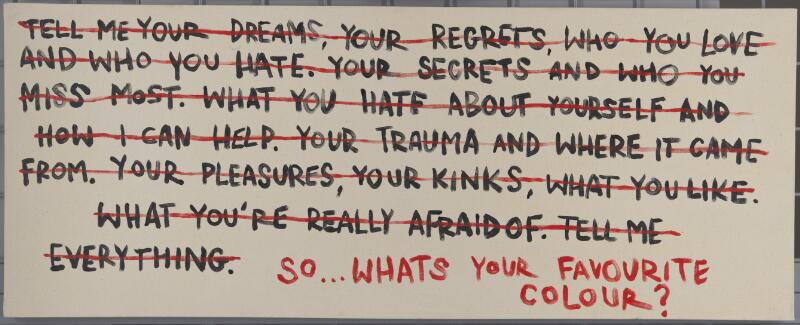 TELL ME YOUR DREAMS, YOUR REGRETS, WHO YOU LOVE
AND WHO YOU HATE. YOUR SECRETS AND WHO YOU
MISS MOST. WHAT YOU HATE ABOUT YOURSELF AND
HOW I CAN HELP. YOUR TRAUMA AND WHERE IT CAME
FROM. YOUR PLEASURES, YOUR KINKS, WHAT YOU LIKE.
WHAT YOU'RE REALLY AFRAID OF. TELL ME
EVERYTHING. SO... WHATS YOUR FAVOURITE
COLOUR?